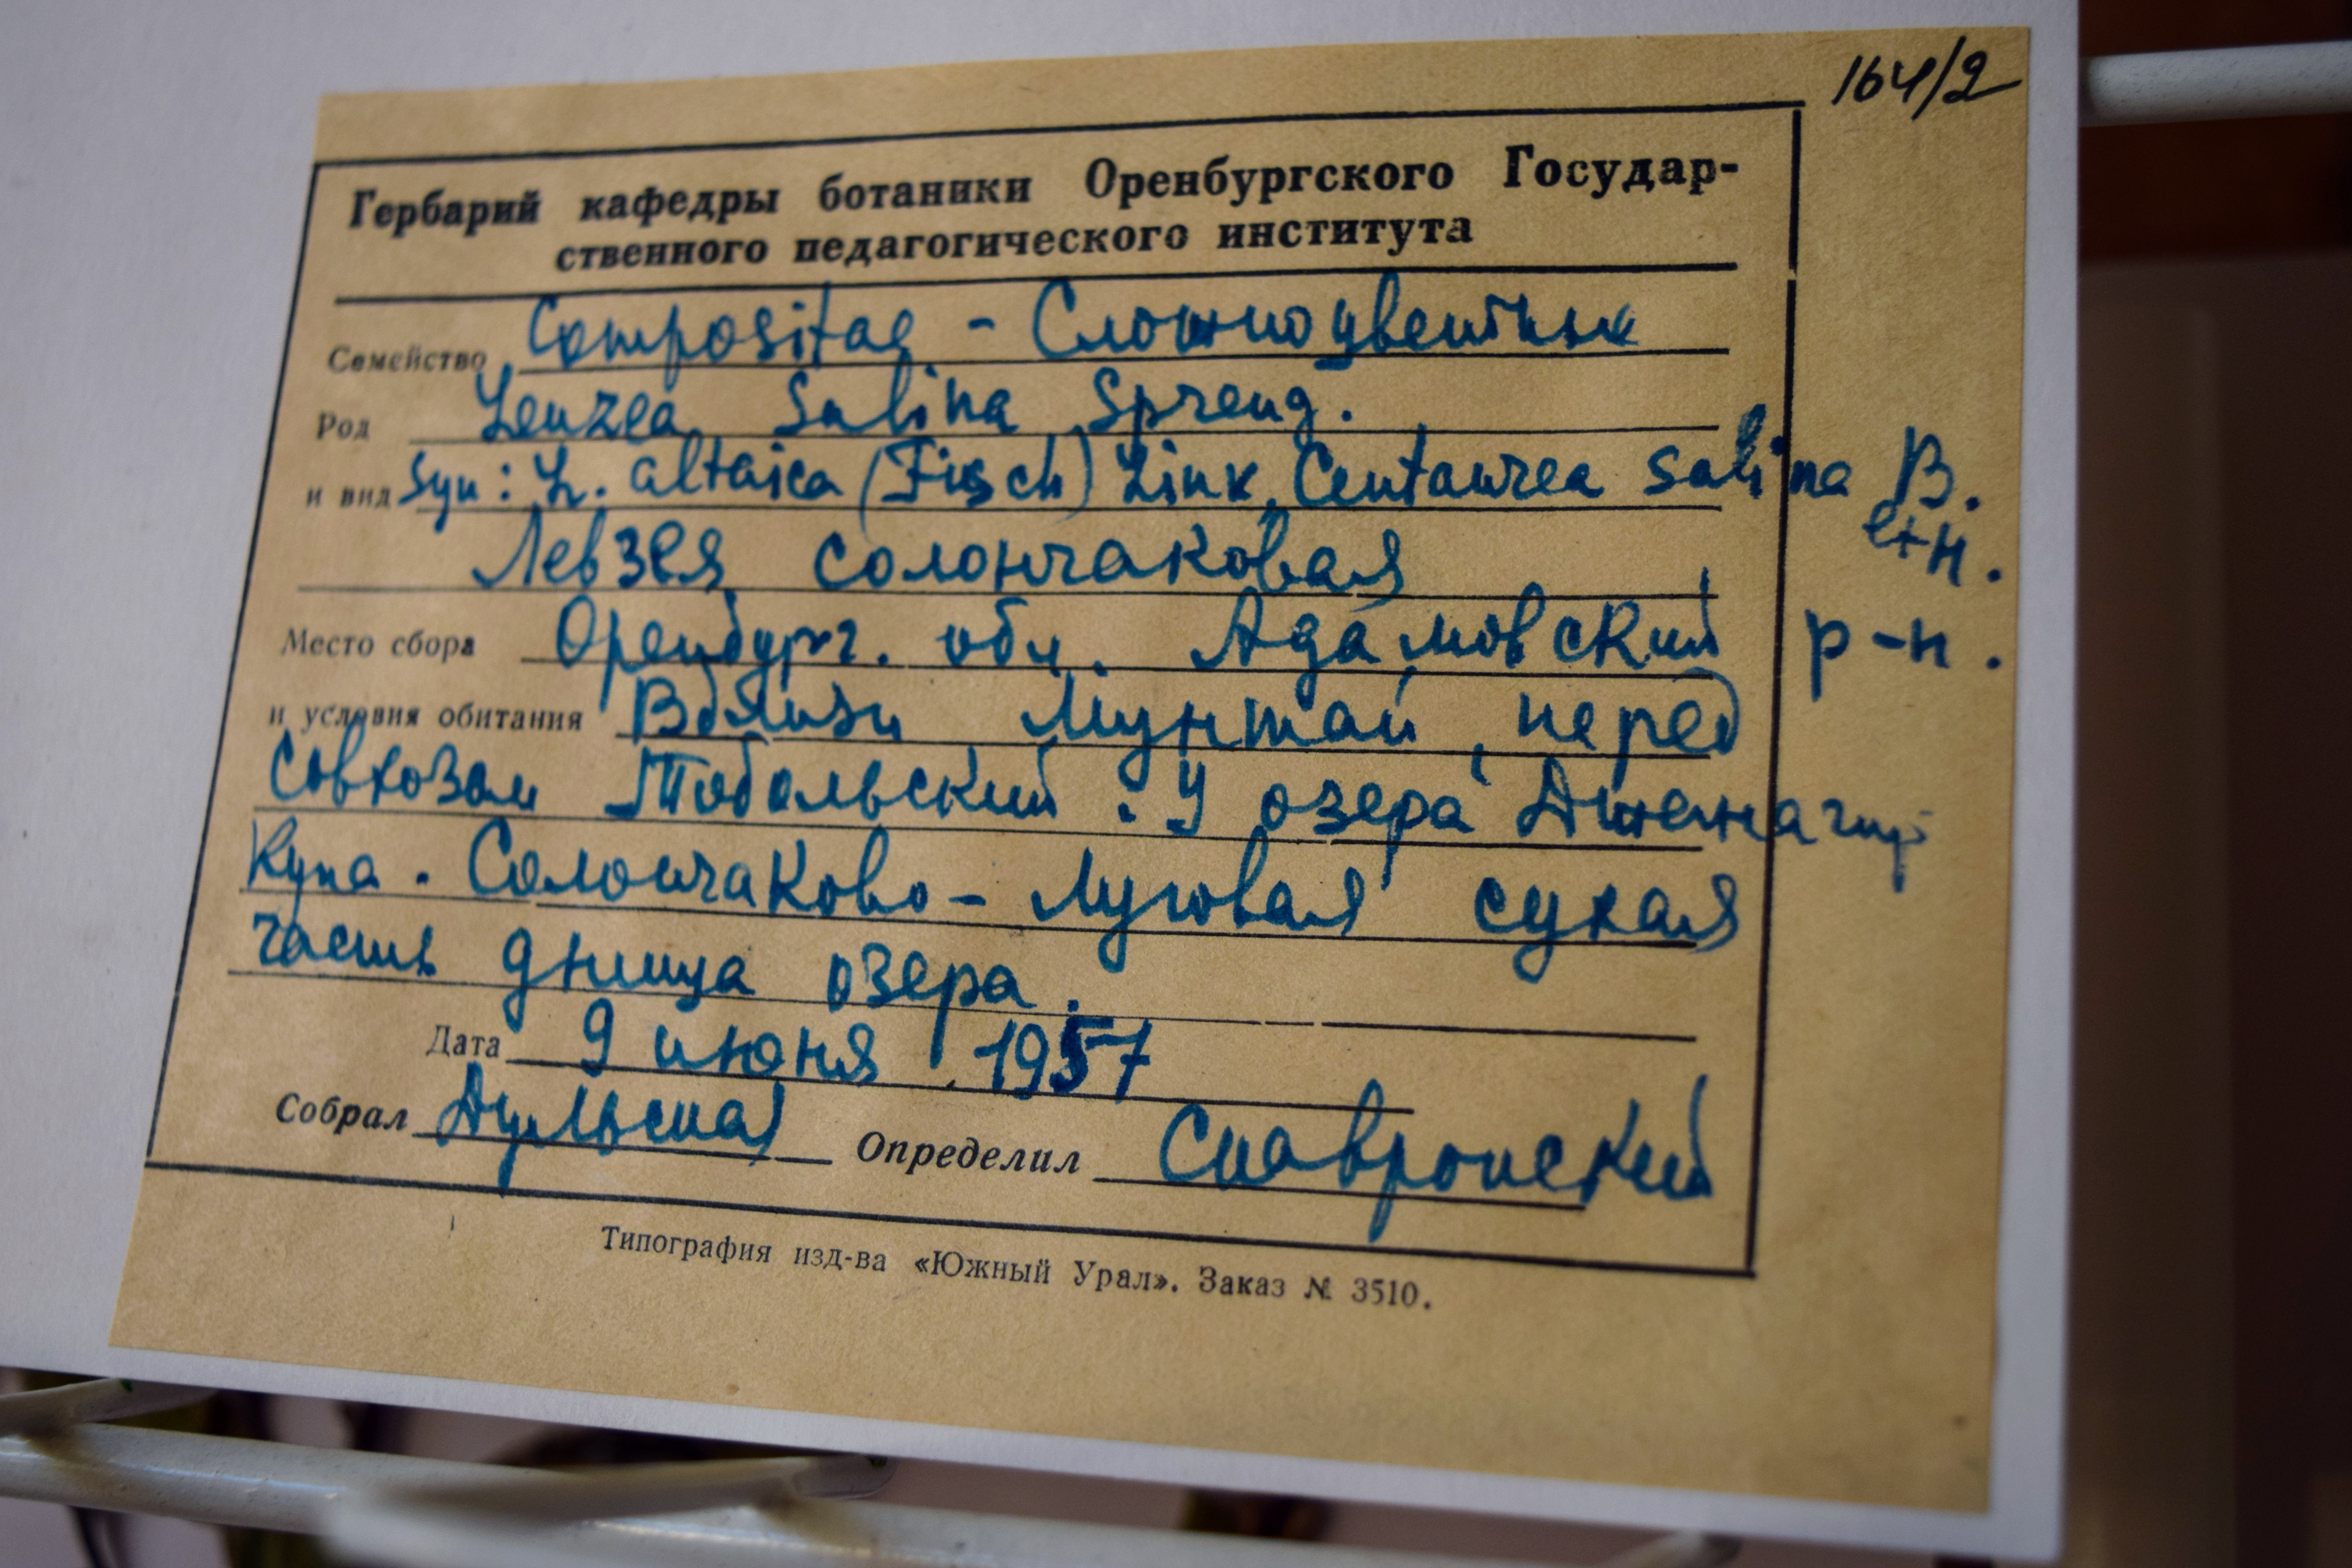 164/2
Гербарий кафедры ботаники Оренбургского Государ-
ственного педагогического института
Семейство Compositae - Сложноцветных
Род Leuzea Salina Spreng.
и вид Syn: L. altaica (Fisch) Link, Centaurea salina B.
et H.
Левзея солончаковая
Место сбора Оренбург. обл. Адамовский р-н.
и условия обитания Вблизи Мунтай, перед
совхозом Тобольский. У озера
Купа. Солончаково-луговая сухая
часть днища озера.
Дата 9 июня 1957
Собрал Определил
Типография изд-ва «Южный Урал». Заказ № 3510.